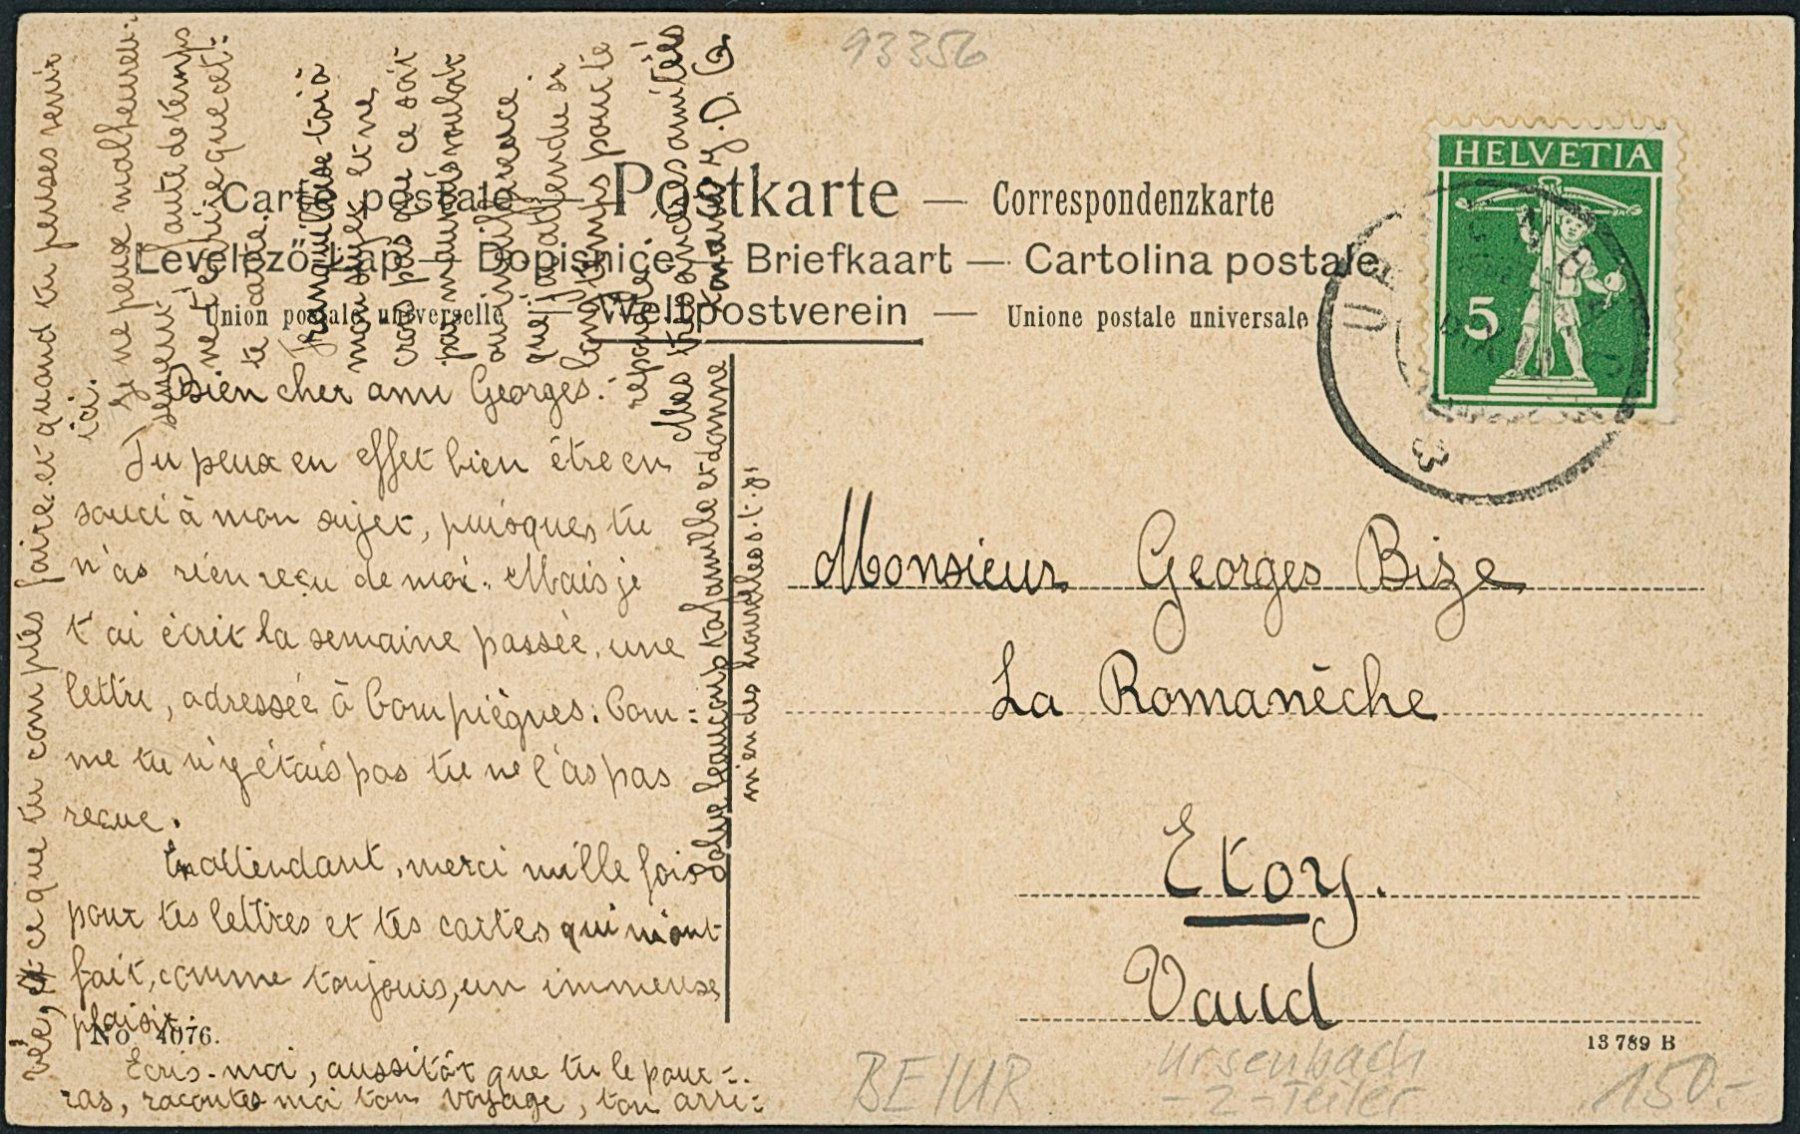 93356
HELVETIA
5
UR
Carte postale — Postkarte — Correspondenzkarte
Levelező-Lap — Dopisnice — Briefkaart — Cartolina postale
Union postale universelle — Weltpostverein — Unione postale universale
Bien cher ami Georges.
Tu peux en effet bien être en
souci à mon sujet, puisques tu
n'as rien reçu de moi. Mais je
t'ai écrit la semaine passée, une
lettre, adressée à Compiègnes. Com-
me tu n'y étais pas tu ne l'as pas
reçue.
En attendant, merci mille fois
pour tes lettres et tes cartes qui m'ont
fait, comme toujours, un immense
plaisir.
Ecris-moi, aussitôt que tu le pour-
ras, racontes moi ton voyage, ton arri-
vée, ce que tu comptes faire et quand tu penses venir
ici.
Je ne peux malheureu-
sement, faute de temps
ne t'écrire que cet-
te carte.
Tranquillise-toi à
mon sujet et ne
crois pas que ce soit
par mauvais vouloir
ou indifférence
que j'ai attendu si
longtemps pour te
répondre.
Mes très sincères amitiés
ton ami J. D. G.
Salue beaucoup ta famille et donne
m'en des nouvelles s.t.p.
Monsieur Georges Bize
La Romanèche
Etoy.
Vaud
No 4076.
13789 B
BE/UR
Ursenbach
-2-Teiler
150.-